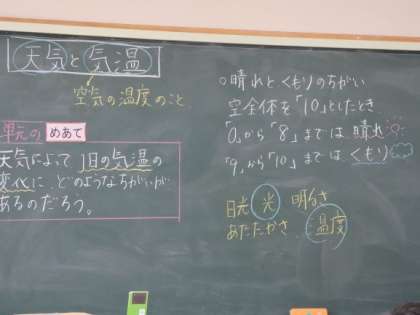 天気と気温
空気の温度のこと。
単元の めあて
天気によって 1日の気温の
変化に、どのようなちがいが
あるのだろう。
○晴れとくもりのちがい
空全体を「10」としたとき
「0」から「8」までは 晴れ
「9」から「10」までは くもり
日光 光 明るさ
あたたかさ 温度